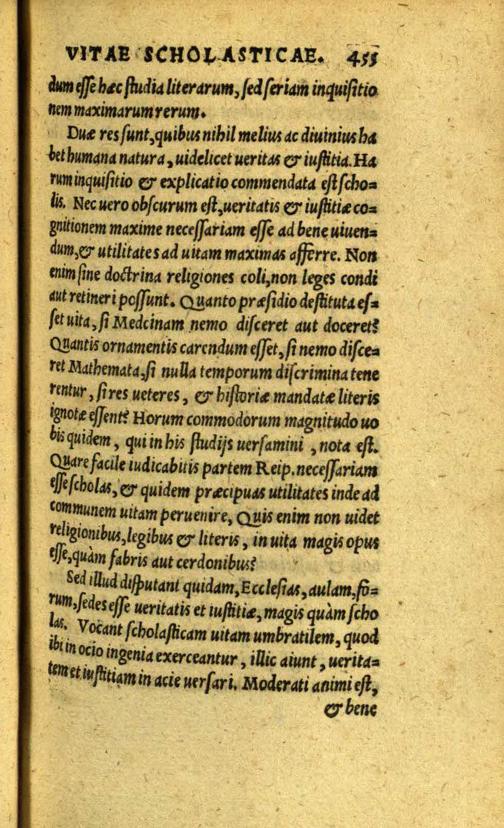 VITAE SCHOLASTICAE. 455
dum esse hæc studia literarum, sed seriam inquisitio
nem maximarum rerum.
Duæ res sunt, quibus nihil melius ac diuinius ha
bet humana natura, uidelicet ueritas & iustitia. Ha
rum inquisitio & explicatio commendata est scho=
lis. Nec uero obscurum est, ueritatis & iustitiæ co=
gnitionem maxime necessariam esse ad bene uiuen=
dum, & utilitates ad uitam maximas afferre. Non
enim sine doctrina religiones coli, non leges condi
aut retineri possunt. Quanto præsidio destituta es=
set uita, si Medcinam nemo disceret aut doceret?
Quantis ornamentis carendum esset, si nemo disce=
ret Mathemata, si nulla temporum discrimina tene
rentur, si res ueteres, & historiæ mandatæ literis
ignotæ essent? Horum commodorum magnitudo uo
bis quidem, qui in his studijs uersamini, nota est.
Quare facile iudicabitis partem Reip. necessariam
esse scholas, & quidem præcipuas utilitates inde ad
communem uitam peruenire, Quis enim non uidet
religionibus, legibus & literis, in uita magis opus
esse, quàm fabris aut cerdonibus?
Sed illud disputant quidam, Ecclesias, aulam, fo=
rum, sedes esse ueritatis et iustitiæ, magis quàm scho
las. Vocant scholasticam uitam umbratilem, quod
ibi in ocio ingenia exerceantur, illic aiunt, uerita=
tem et iustitiam in acie uersari. Moderati animi est,
& bene